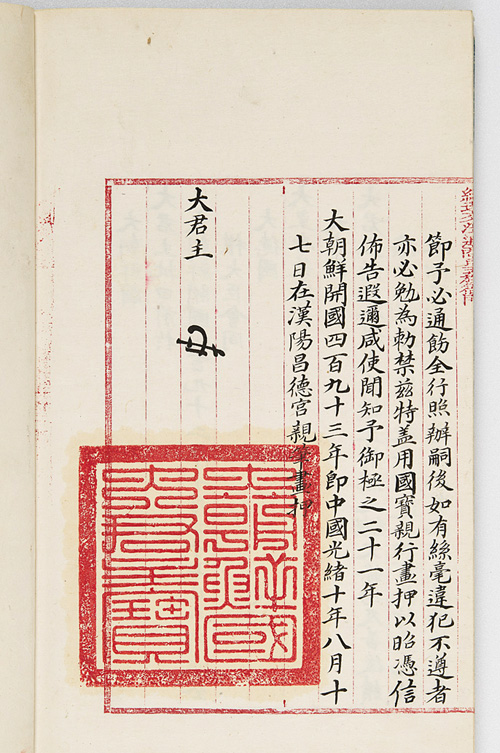 節予必通飭全行照辦嗣後如有絲毫違犯不遵者
亦必勉為勅禁茲特盖用國寶親行畫押以昭憑信
佈告遐邇咸使聞知予御極之二十一年
大朝鮮開國四百九十三年卽中國光緒十年八月十
七日在漢陽昌德宮親筆畫押
大君主
大朝鮮國
大君主寶